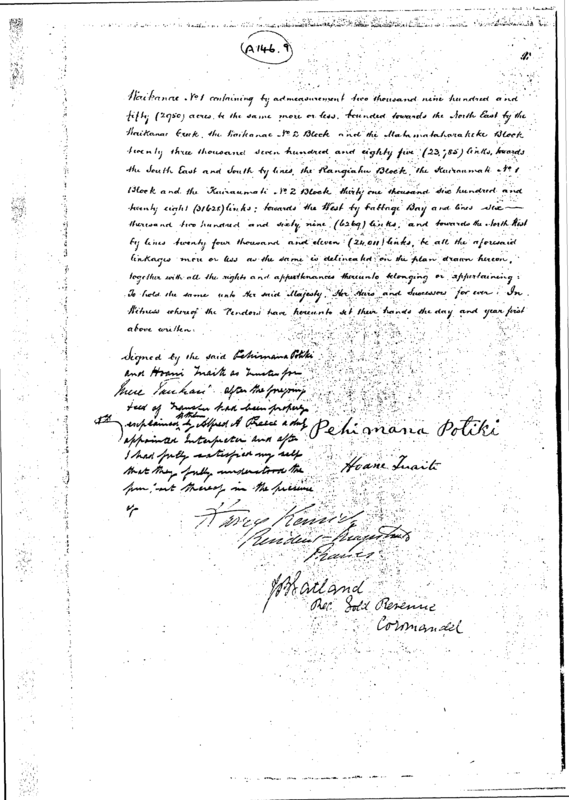 A146.9
Waikanae No 1 containing by admeasurement two thousand nine hundred and
fifty (2950) acres, be the same more or less, bounded towards the North East by the
Waikanae Creek, the Waikanae No 2 Block and the Matamataharakeke Block
twenty three thousand seven hundred and eighty five links, towards
the South East and South by lines, the Rangiahu Block, the Kuiraumati No 1
Block and the Kuiraumati No 2 Block thirty one thousand six hundred and
twenty eight (31628) links; towards the West by Cabbage Bay and lines six
thousand two hundred and sixty nine (6269) links, and towards the North West
by lines twenty four thousand and eleven (24,011) links, be all the aforesaid
linkages more or less as the same is delineated on the plan drawn hereon,
together with all the rights and appurtenances thereunto belonging or appertaining:
To hold the same unto Her said Majesty, Her Heirs and Successors for ever: In
Witness whereof the Vendors have hereunto set their hands the day and year first
above written.
Signed by the said Pehimana Potiki
and Hoani Tuaiti as trustee for
after the foregoing
deed of transfer had been properly
explained by Alfred A Preece a duly
appointed Interpreter and after
I had fully satisfied my self
that they fully understood the
thereof in the presence
of
Pehimana Potiki
Hoane Tuaiti
Harry Kenrick
Resident Magistrate
Thames
Rec. Gold Revenue
Coromandel